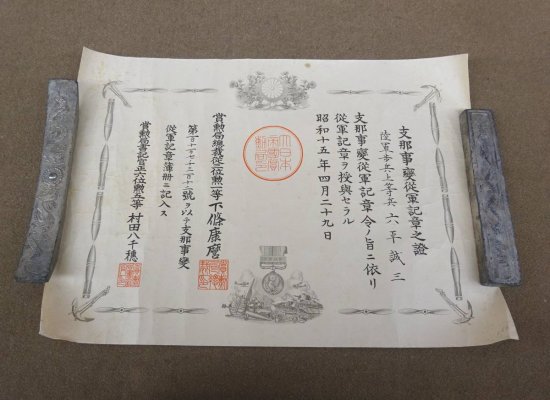 支那事變從軍記章之證
陸軍歩兵上等兵 六平誠三
支那事變從軍記章令ノ旨ニ依リ
從軍記章ヲ授與セラル
昭和十五年四月二十九日
大日本帝國賞勲局印
賞勲局總裁從三位勲一等下條康麿
號ヲ以テ支那事變
從軍記章簿册ニ記入ス
賞勲局書記官正六位勲五等 村田八千穂